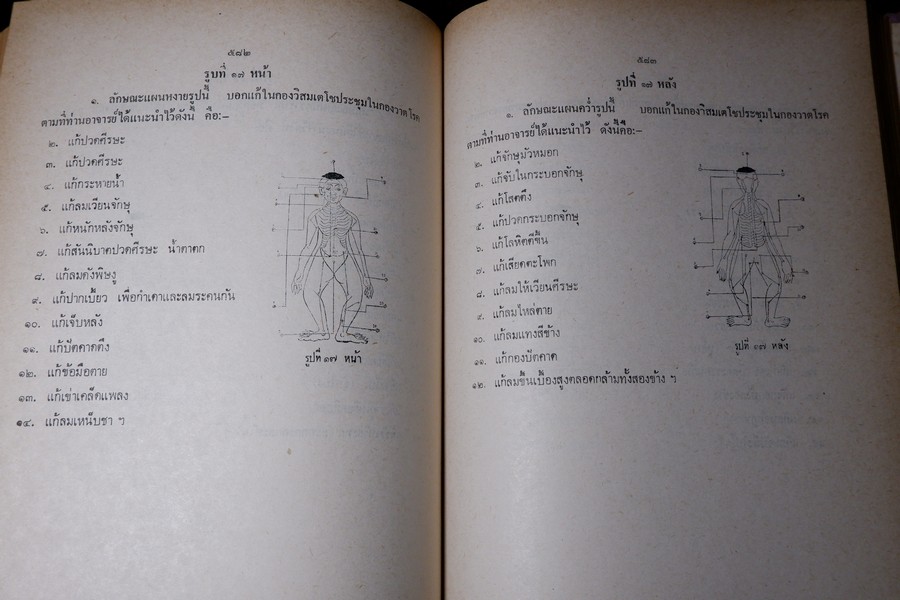 ๕๘๒
รูปที่ ๑๗ หน้า
๑. ลักษณะแผนหงายรูปนี้ บอกแก้ในกองวิสมเตโชประชุมในกองวาตโรค
ตามที่ท่านอาจารย์ได้แนะนำไว้ดังนี้ คือ:–
๒. แก้ปวดศีรษะ
๓. แก้ปวดศีรษะ
๔. แก้กระหายน้ำ
๕. แก้ลมเวียนจักษุ
๖. แก้หนักหลังจักษุ
๗. แก้สันนิบาตปวดศีรษะ น้ำตาตก
๘. แก้ลมดังพิษงู
๙. แก้ปากเบี้ยว เพื่อกำเดาและลมระคนกัน
๑๐. แก้เจ็บหลัง
๑๑. แก้ปัตคาดตึง
๑๒. แก้ข้อมือตาย
๑๓. แก้เข่าเคล็ดแพลง
๑๔. แก้ลมเหน็บชา ฯ
รูปที่ ๑๗ หน้า
๕๘๓
รูปที่ ๑๗ หลัง
๑. ลักษณะแผนคว่ำรูปนี้ บอกแก้ในกองวิสมเตโชประชุมในกองวาตโรค
ตามที่ท่านอาจารย์ได้แนะนำไว้ ดังนี้คือ:–
๒. แก้จักษุมัวหมอก
๓. แก้จับในกระบอกจักษุ
๔. แก้โสตตึง
๕. แก้ปวดกระบอกจักษุ
๖. แก้โลหิตตีขึ้น
๗. แก้เสียดตะโพก
๘. แก้ลมให้เวียนศีรษะ
๙. แก้ลมไหล่ตาย
๑๐. แก้ลมแทงสีข้าง
๑๑. แก้กองปัตคาด
๑๒. แก้ลมขึ้นเบื้องสูงตลอดกล้ามทั้งสองข้าง ฯ
รูปที่ ๑๗ หลัง